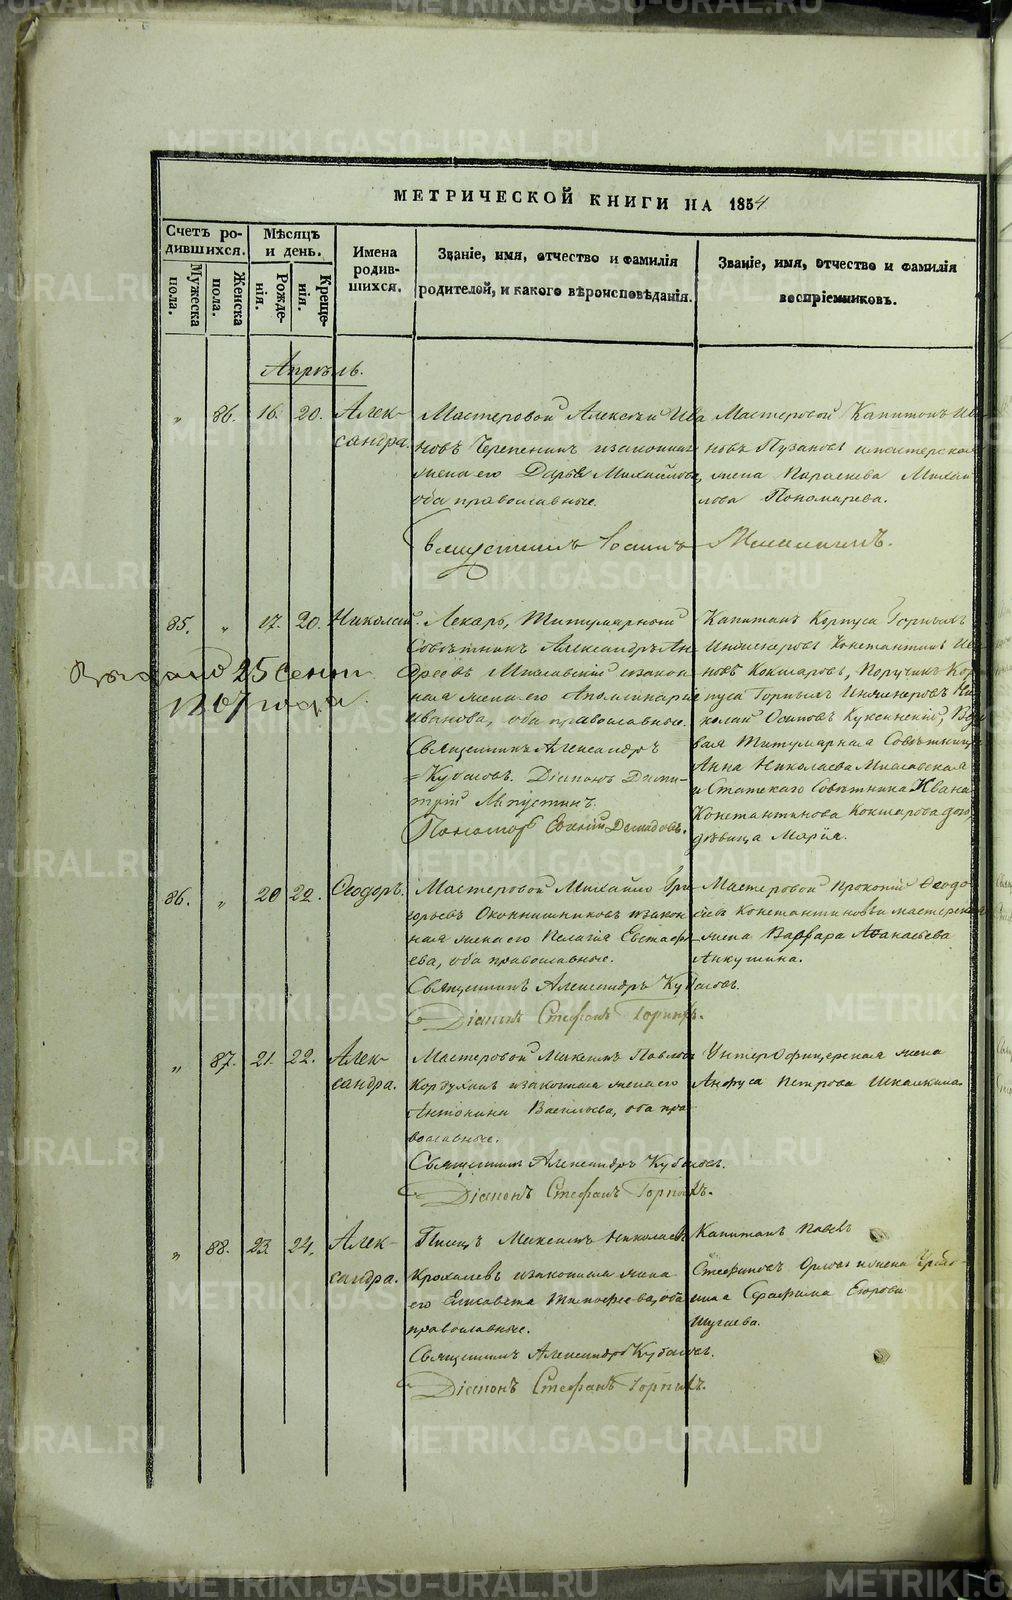 МЕТРИЧЕСКОЙ КНИГИ НА 1854
Счетъ ро-
дившихся.
Мужеска
пола.
Женска
пола.
Мѣсяцъ
и день.
Рожде-
нія.
Креще-
нія.
Имена
родив-
шихся.
Званіе, имя, отчество и фамилія
родителей, и какого вѣроисповѣданія.
Званіе, имя, отчество и фамилія
воспріемниковъ.
Апрѣль.
" 86. 16. 20. Алек-
сандра.
Мастеровой Алексѣй Ива
новъ Черепенинъ и законная
жена его Дарья Михайлова,
оба православные.
Мастеровой Капитонъ Ива
новъ Пузановъ и мастерская
жена Параскева Михаи
лова Пономарева.
85. " 17. 20. Николай.
25 Сент
1867 года.
Лекарь, Титулярный
Совѣтникъ Александръ Ан
дреевъ Миславскій и закон
ная жена его Аполлинария
Иванова, оба православные.
Священникъ Александръ
Кубасовъ. Діаконъ Дими-
трій Августинъ.
Пономарь Демидовъ.
Капитанъ Корпуса Горныхъ
Инженеровъ Константинъ Ива
новъ Кокшаровъ, Поручикъ Кор
пуса Горныхъ Инженеровъ Ни
колай Осиповъ Куксинскій, Вдо
вая Титулярная Совѣтница
Анна Николаева Миславская
и Статскаго Совѣтника Ивана
Константинова Кокшарова дочь
дѣвица Марія.
86. " 20 22. Ѳеодоръ.
Мастеровой Михайло Гри
горьевъ Оконнишниковъ и закон
ная жена его Пелагія Евстафі
ева, оба православные.
Священникъ Александръ Кубасовъ.
Діаконъ Стефанъ Горныхъ.
Мастеровой Прокопій Ѳеодо
сіевъ Константиновъ и мастерская
жена Варвара Аѳанасьева
Анкушина.
" 87. 21. 22. Алек-
сандра.
Мастеровой Максимъ Павловъ
Корзухинъ и законная жена его
Антонина Васильева, оба пра
вославные.
Священникъ Александръ Кубасовъ.
Діаконъ Стефанъ Горныхъ.
Унтер Офицерская жена
Анфуса Петрова Шкалкина.
" 88. 23. 24. Алек-
сандра.
Писецъ Максимъ Николаевъ
Крохалевъ и законная жена
его Елисавета Тимофеева, оба
православные.
Священникъ Александръ Кубасовъ.
Діаконъ Стефанъ Горныхъ.
Капитанъ Павелъ
Стефановъ Орловъ и жена
Серафима Егорова
Шугаева.
METRIKI.GASO-URAL.RU